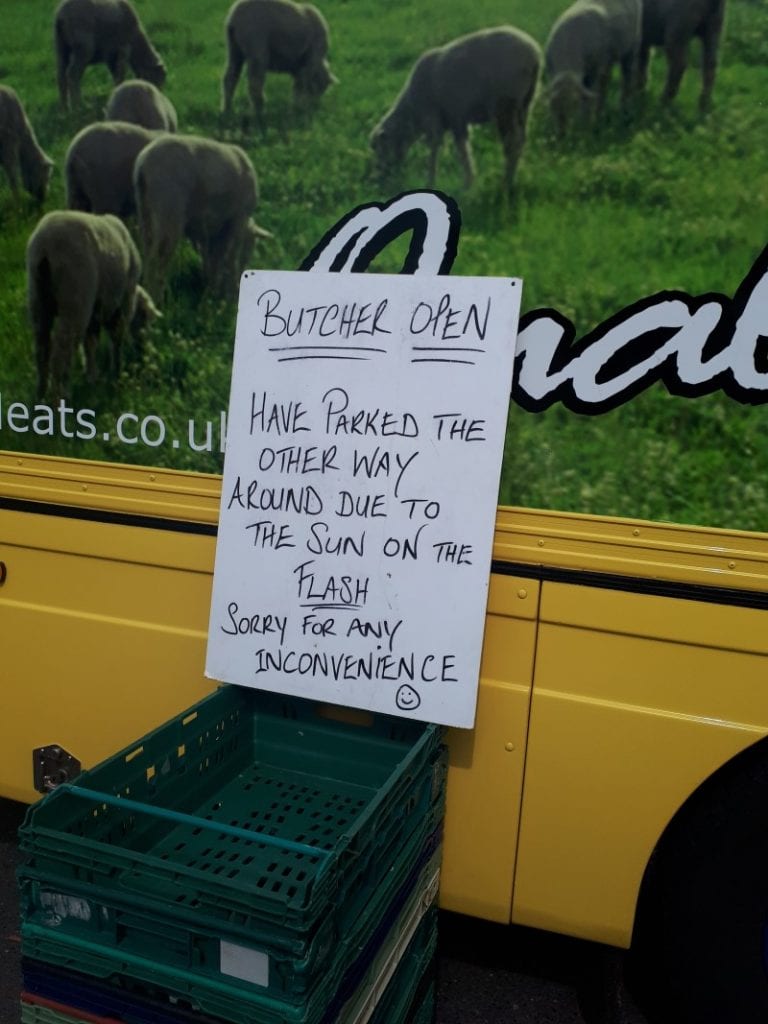 BUTCHER OPEN
HAVE PARKED THE
OTHER WAY
AROUND DUE TO
THE SUN ON THE
FLASH
SORRY FOR ANY
INCONVENIENCE
eats.co.uk